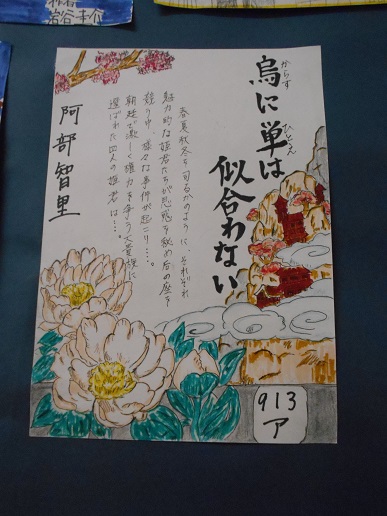 岩谷圭介
からす
烏に単は
ひとえ
似合わない
春夏秋冬を司るかのように、それぞれ
魅力的な姫君たちが思惑を秘め后の座を
競う中、様々な事件が起こり…。
朝廷で激しく権力を争う大貴族に
選ばれた四人の姫君は…。
阿部智里
913
ア